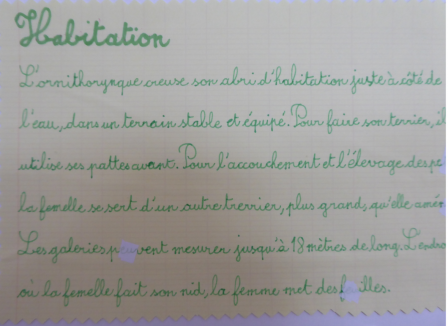 Habitation
L'ornithorynque creuse son abri d'habitation juste à côté de
l'eau, dans un terrain stable et équipé. Pour faire son terrier, il
utilise ses pattes avant. Pour l'accouchement et l'élevage des
la femelle se sert d'un autre trerrier, plus grand, qu'elle
Les galeries peuvent mesurer jusqu'à 18 mètres de long.
où la femelle fait son nid, la femme met des